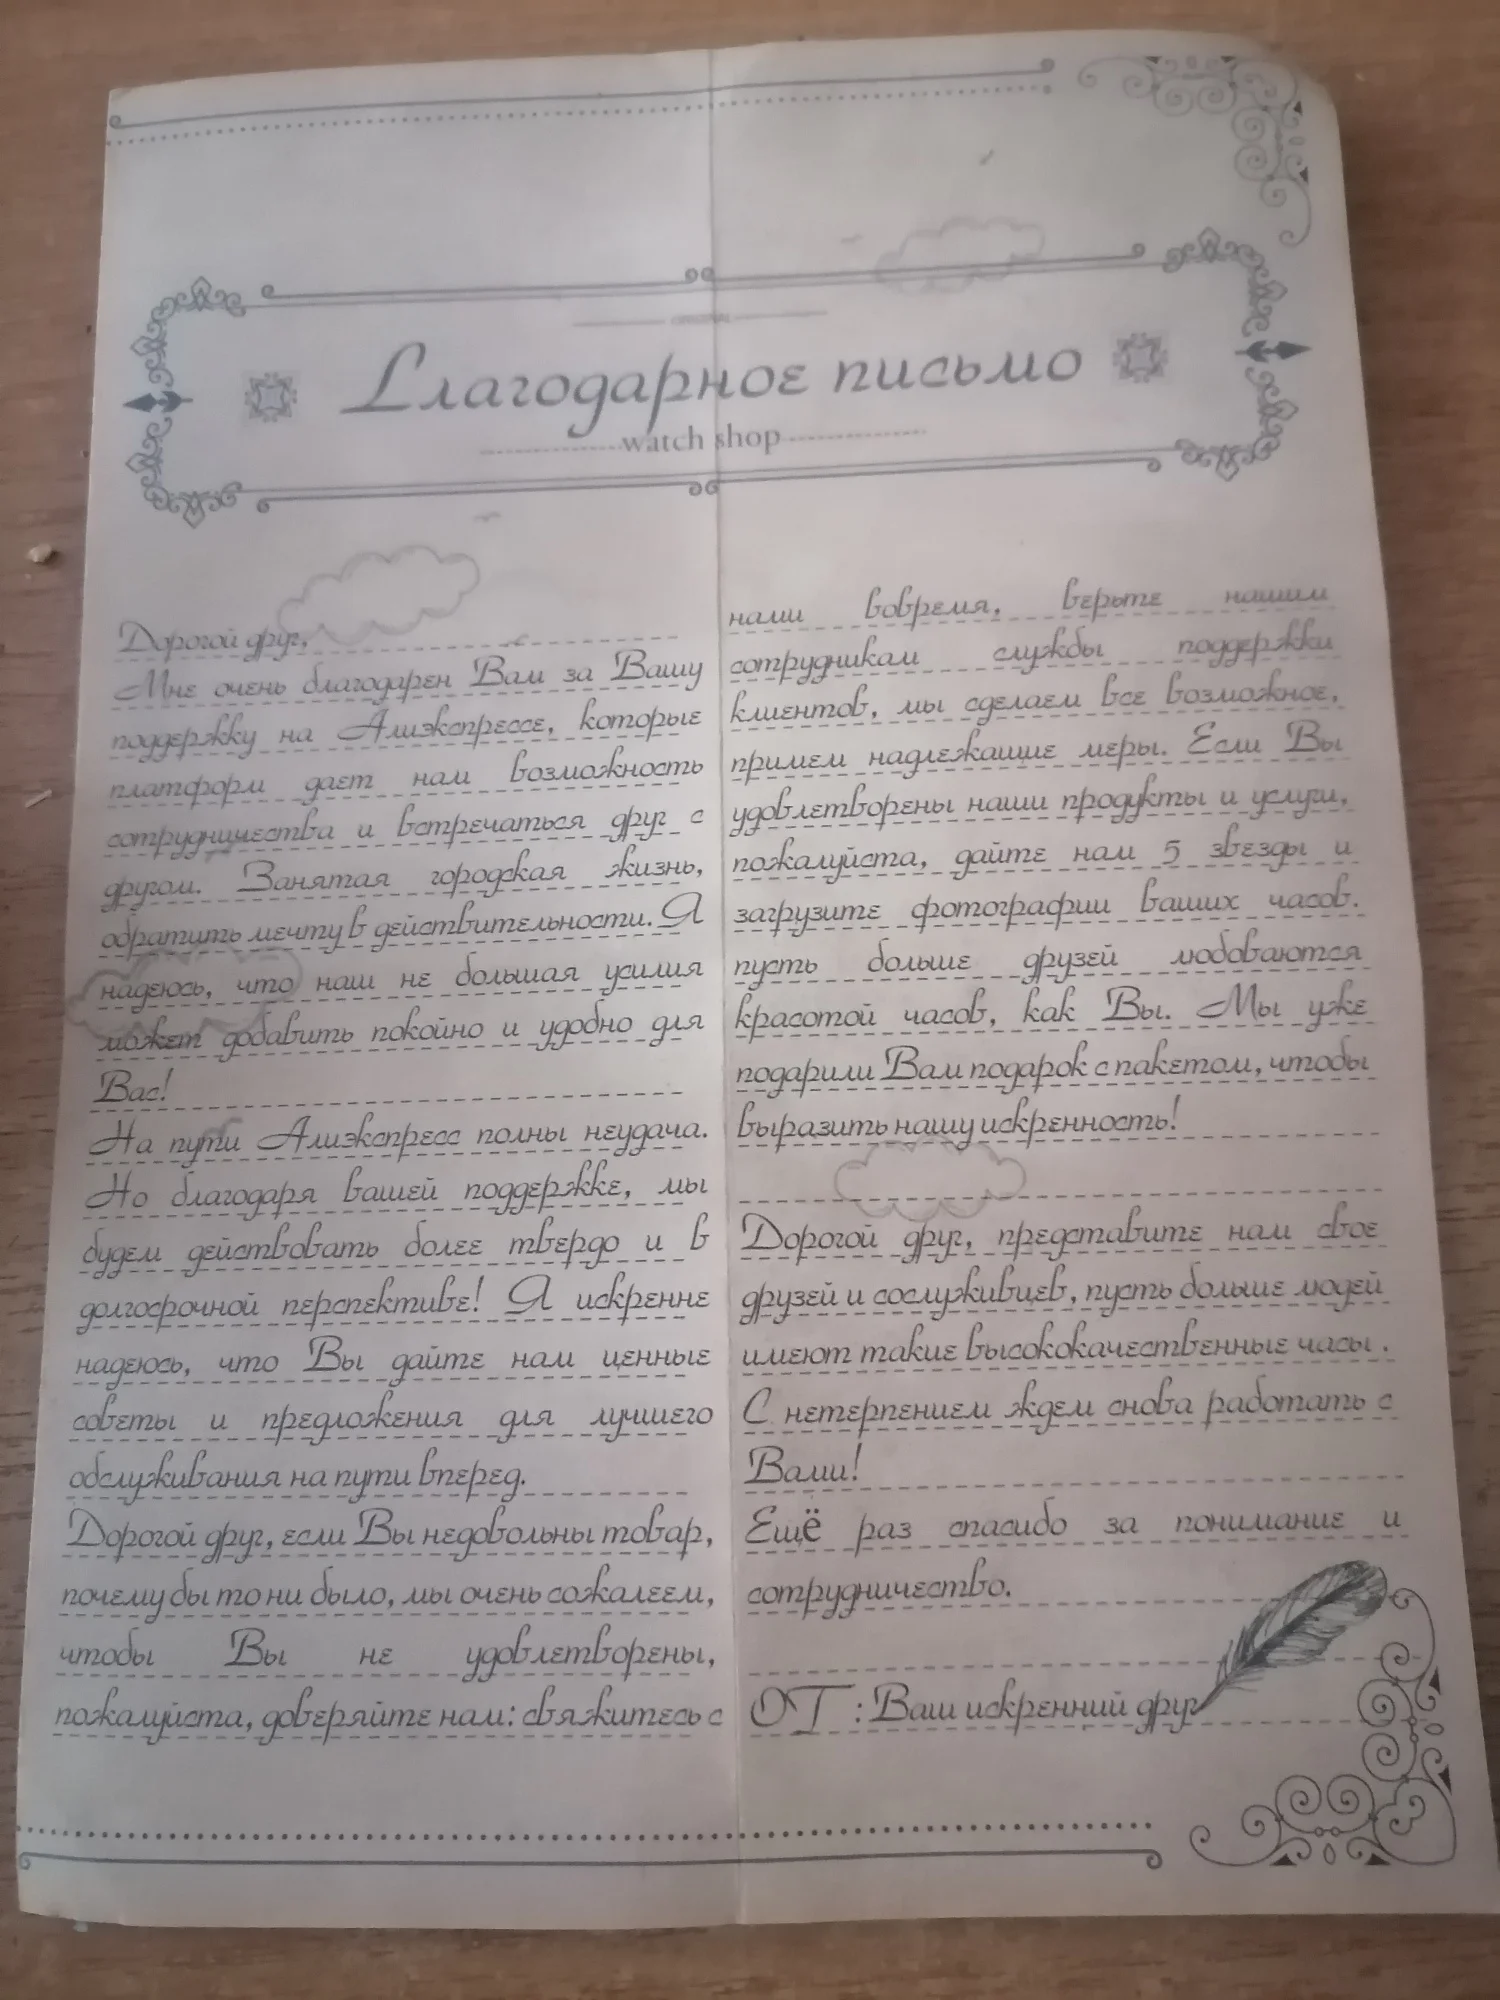 Благодарное письмо
watch shop
Дорогой друг,
Мне очень благодарен Вам за Вашу
поддержку на Алиэкспрессе, которые
платформ дает нам возможность
сотрудничества и встречаться друг с
другом. Занятая городская жизнь,
обратить мечту в действительности. Я
надеюсь, что наш не большая усилия
может добавить покойно и удобно для
Вас!
На пути Алиэкспресс полны неудача.
Но благодаря вашей поддержке, мы
будем действовать более твердо и в
долгосрочной перспективе! Я искренне
надеюсь, что Вы дайте нам ценные
советы и предложения для лучшего
обслуживания на пути вперед.
Дорогой друг, если Вы недовольны товар,
почему бы то ни было, мы очень сожалеем,
чтобы Вы не удовлетворены,
пожалуйста, доверяйте нам: свяжитесь с
нами вовремя, верьте нашим
сотрудникам службы поддержки
клиентов, мы сделаем все возможное,
примем надлежащие меры. Если Вы
удовлетворены наши продукты и услуги,
пожалуйста, дайте нам 5 звезды и
загрузите фотографии ваших часов.
пусть больше друзей любоваются
красотой часов, как Вы. Мы уже
подарили Вам подарок с пакетом, чтобы
выразить нашу искренность!
Дорогой друг, представите нам свое
друзей и сослуживцев, пусть больше людей
имеют такие высококачественные часы .
С нетерпением ждем снова работать с
Вами!
Ещё раз спасибо за понимание и
сотрудничество.
ОТ : Ваш искренний друг